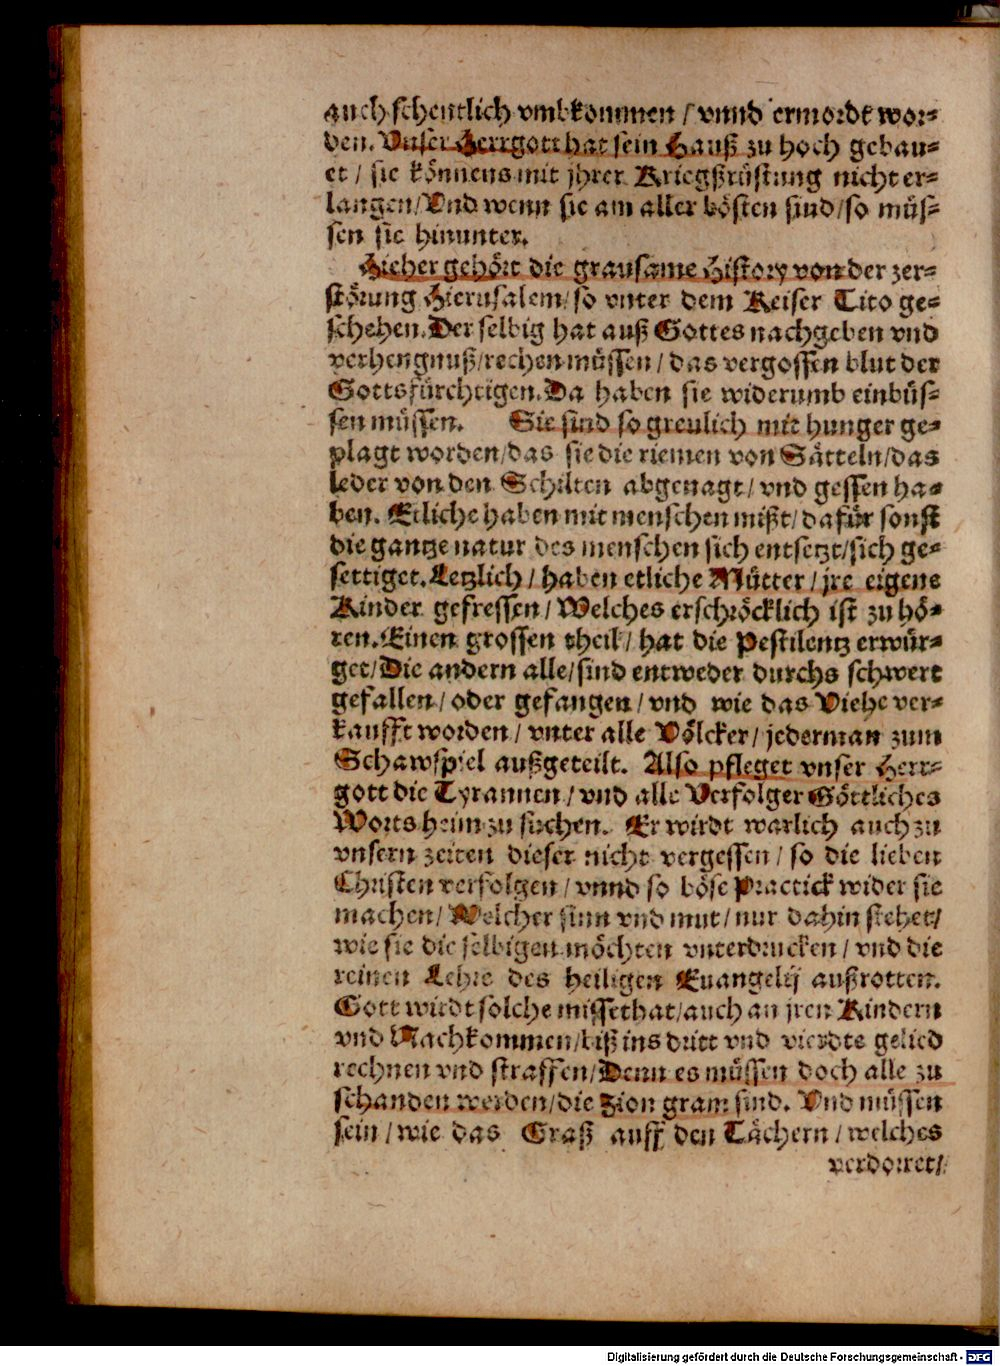 auch schentlich vmbkommen / vnnd ermordt wor⸗
den. Vnser Herrgott hat sein Hauß zu hoch gebau⸗
et / sie könnens mit jhrer Kriegßrüstung nicht er⸗
langen / Vnd wenn sie am aller bösten sind / so müs⸗
sen sie hinunter.
Hieher gehört die grausame History von der zer⸗
störung Hierusalem / so vnter dem Keiser Tito ge⸗
schehen. Der selbig hat auß Gottes nachgeben vnd
verhengnuß / rechen müssen / das vergossen blut der
Gottsfürchtigen. Da haben sie widerumb einbüs⸗
sen müssen. Sie sind so greulich mit hunger ge⸗
plagt worden / das sie die riemen von Sätteln / das
leder von den Schilten abgenagt / vnd gessen ha⸗
ben. Etliche haben mit menschen mißt / dafür sonst
die gantze natur des menschen sich entsetzt / sich ge⸗
settiget. Letzlich / haben etliche Mütter / jre eigene
Kinder gefressen / Welches erschröcklich ist zu hö⸗
ren. Einen grossen theil / hat die Pestilentz erwür⸗
get / Die andern alle / sind entweder durchs schwert
gefallen / oder gefangen / vnd wie das Viehe ver⸗
kaufft worden / vnter alle Völcker / jederman zum
Schawspiel außgeteilt. Also pfleget vnser Herr⸗
gott die Tyrannen / vnd alle Verfolger Göttliches
Worts heim zu suchen. Er wirdt warlich auch zu
vnsern zeiten dieser nicht vergessen / so die lieben
Christen verfolgen / vnnd so böse Practick wider sie
machen / Welcher sinn vnd mut / nur dahin stehet /
wie sie die selbigen möchten vnterdrucken / vnd die
reinen Lehre des heiligen Euangelij außrotten.
Gott wirdt solche missethat / auch an jren Kindern
vnd Nachkommen / biß ins dritt vnd vierdte gelied
rechnen vnd straffen / Denn es müssen doch alle zu
schanden werden / die Zion gram sind. Vnd müssen
sein / wie das Graß auff den Tächern / welches
verdorret /
Digitalisierung gefördert durch die Deutsche Forschungsgemeinschaft - DFG